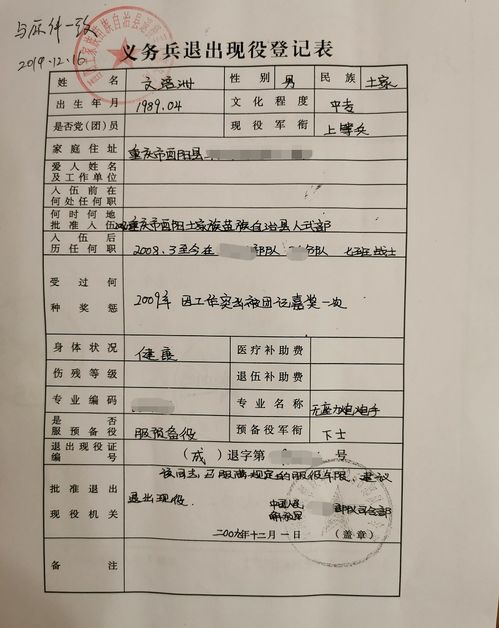 与原件一致
2019.12.16
义务兵退出现役登记表
姓名 文 洲 性别 男 民族 土家
出生年月 1989.04 文化程度 中专
是否党(团)员 现役军衔 上等兵
家庭住址 重庆市酉阳县
爱人姓名及工作单位
入伍前在何处任何职
何时何地批准入伍 重庆市酉阳土家族苗族自治县人武部
入伍后历任何职 2008.3至今在 部队 分队 七班战士
受过何种奖惩 2009年 因工作突出被团记嘉奖一次
身体状况 健康 医疗补助费
伤残等级 退伍补助费
专业编码 专业名称 无座力炮炮手
是否服预备役 服预备役 预备役军衔 下士
退出现役证编号 (成)退字第 号
批准退出现役机关 该同志,已服满规定的服役年限,建议
退出现役.
中国人民
解放军 部队司令部
二00九年十二月一日 (盖章)
备注